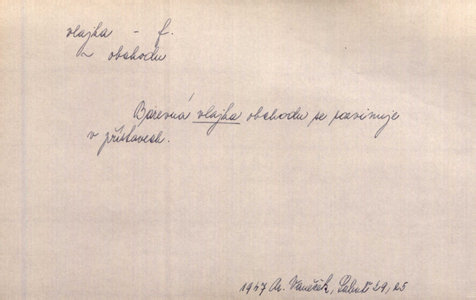 vlajka - f.
~ obchodu
Barevná vlajka obchodu se rozvinuje
v přístavech.
1947 Ar. Vaněček, 29, 25